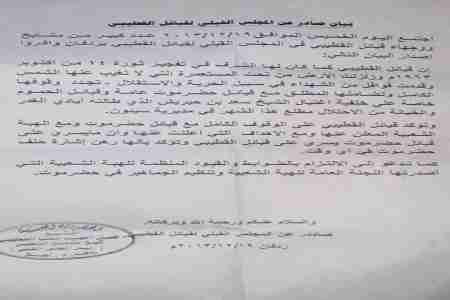 بيان صادر عن المجلس القبلي لقبائل القطيبي
اجتمع اليوم الخميس الموافق ٢٠١٣/١٢/١٩ عدد كبير من مشايخ
ووجهاء قبائل القطيبي في المجلس القبلي لقبائل القطيبي بردفان واقروا
إصدار البيان التالي :
إن قبائل القطيبي كما كان لها الشرف في تفجير ثورة ١٤ من اكتوبر
١٩٦٣م وزلزلت الأرض من تحت المستعمرة التي لا تغيب عنها الشمس
وقدمت قوافل من الشهداء في سبيل الحرية والاستقلال تجدد وقوفها
الكامل تضامنها المطلق مع قبائل حضرموت عامة وقبائل الحموم
خاصة على خلفية اغتيال الشيخ سعد بن حبريش الذي طالته ايادي الغدر
والخيانة من الاحتلال مطلع هذا الشهر في مديرية سيئون.
وتؤكد قبائل القطيبي على الوقوف الكامل مع حضرموت ومع الهبة
الشعبية المعلن عنها ومع الاهداف التي اعلنت عنها وان مايسري على
حضرموت يسري على قبائل القطيبي وتؤكد بأنها رهن إشارة حلف
حضرموت في اي وقت.
كما تدعو الى الالتزام بالضوابط والقيود المنظمة للهبة الشعبية التي
اصدرتها اللجنة العامة للهبة الشعبية وتنظيم الجماهير في حضرموت.
والسلام عليكم ورحمة الله وبركاته
صادر عن المجلس القبلي لقبائل القطيبي
ردفان ٢٠١٣/١٢/١٩م